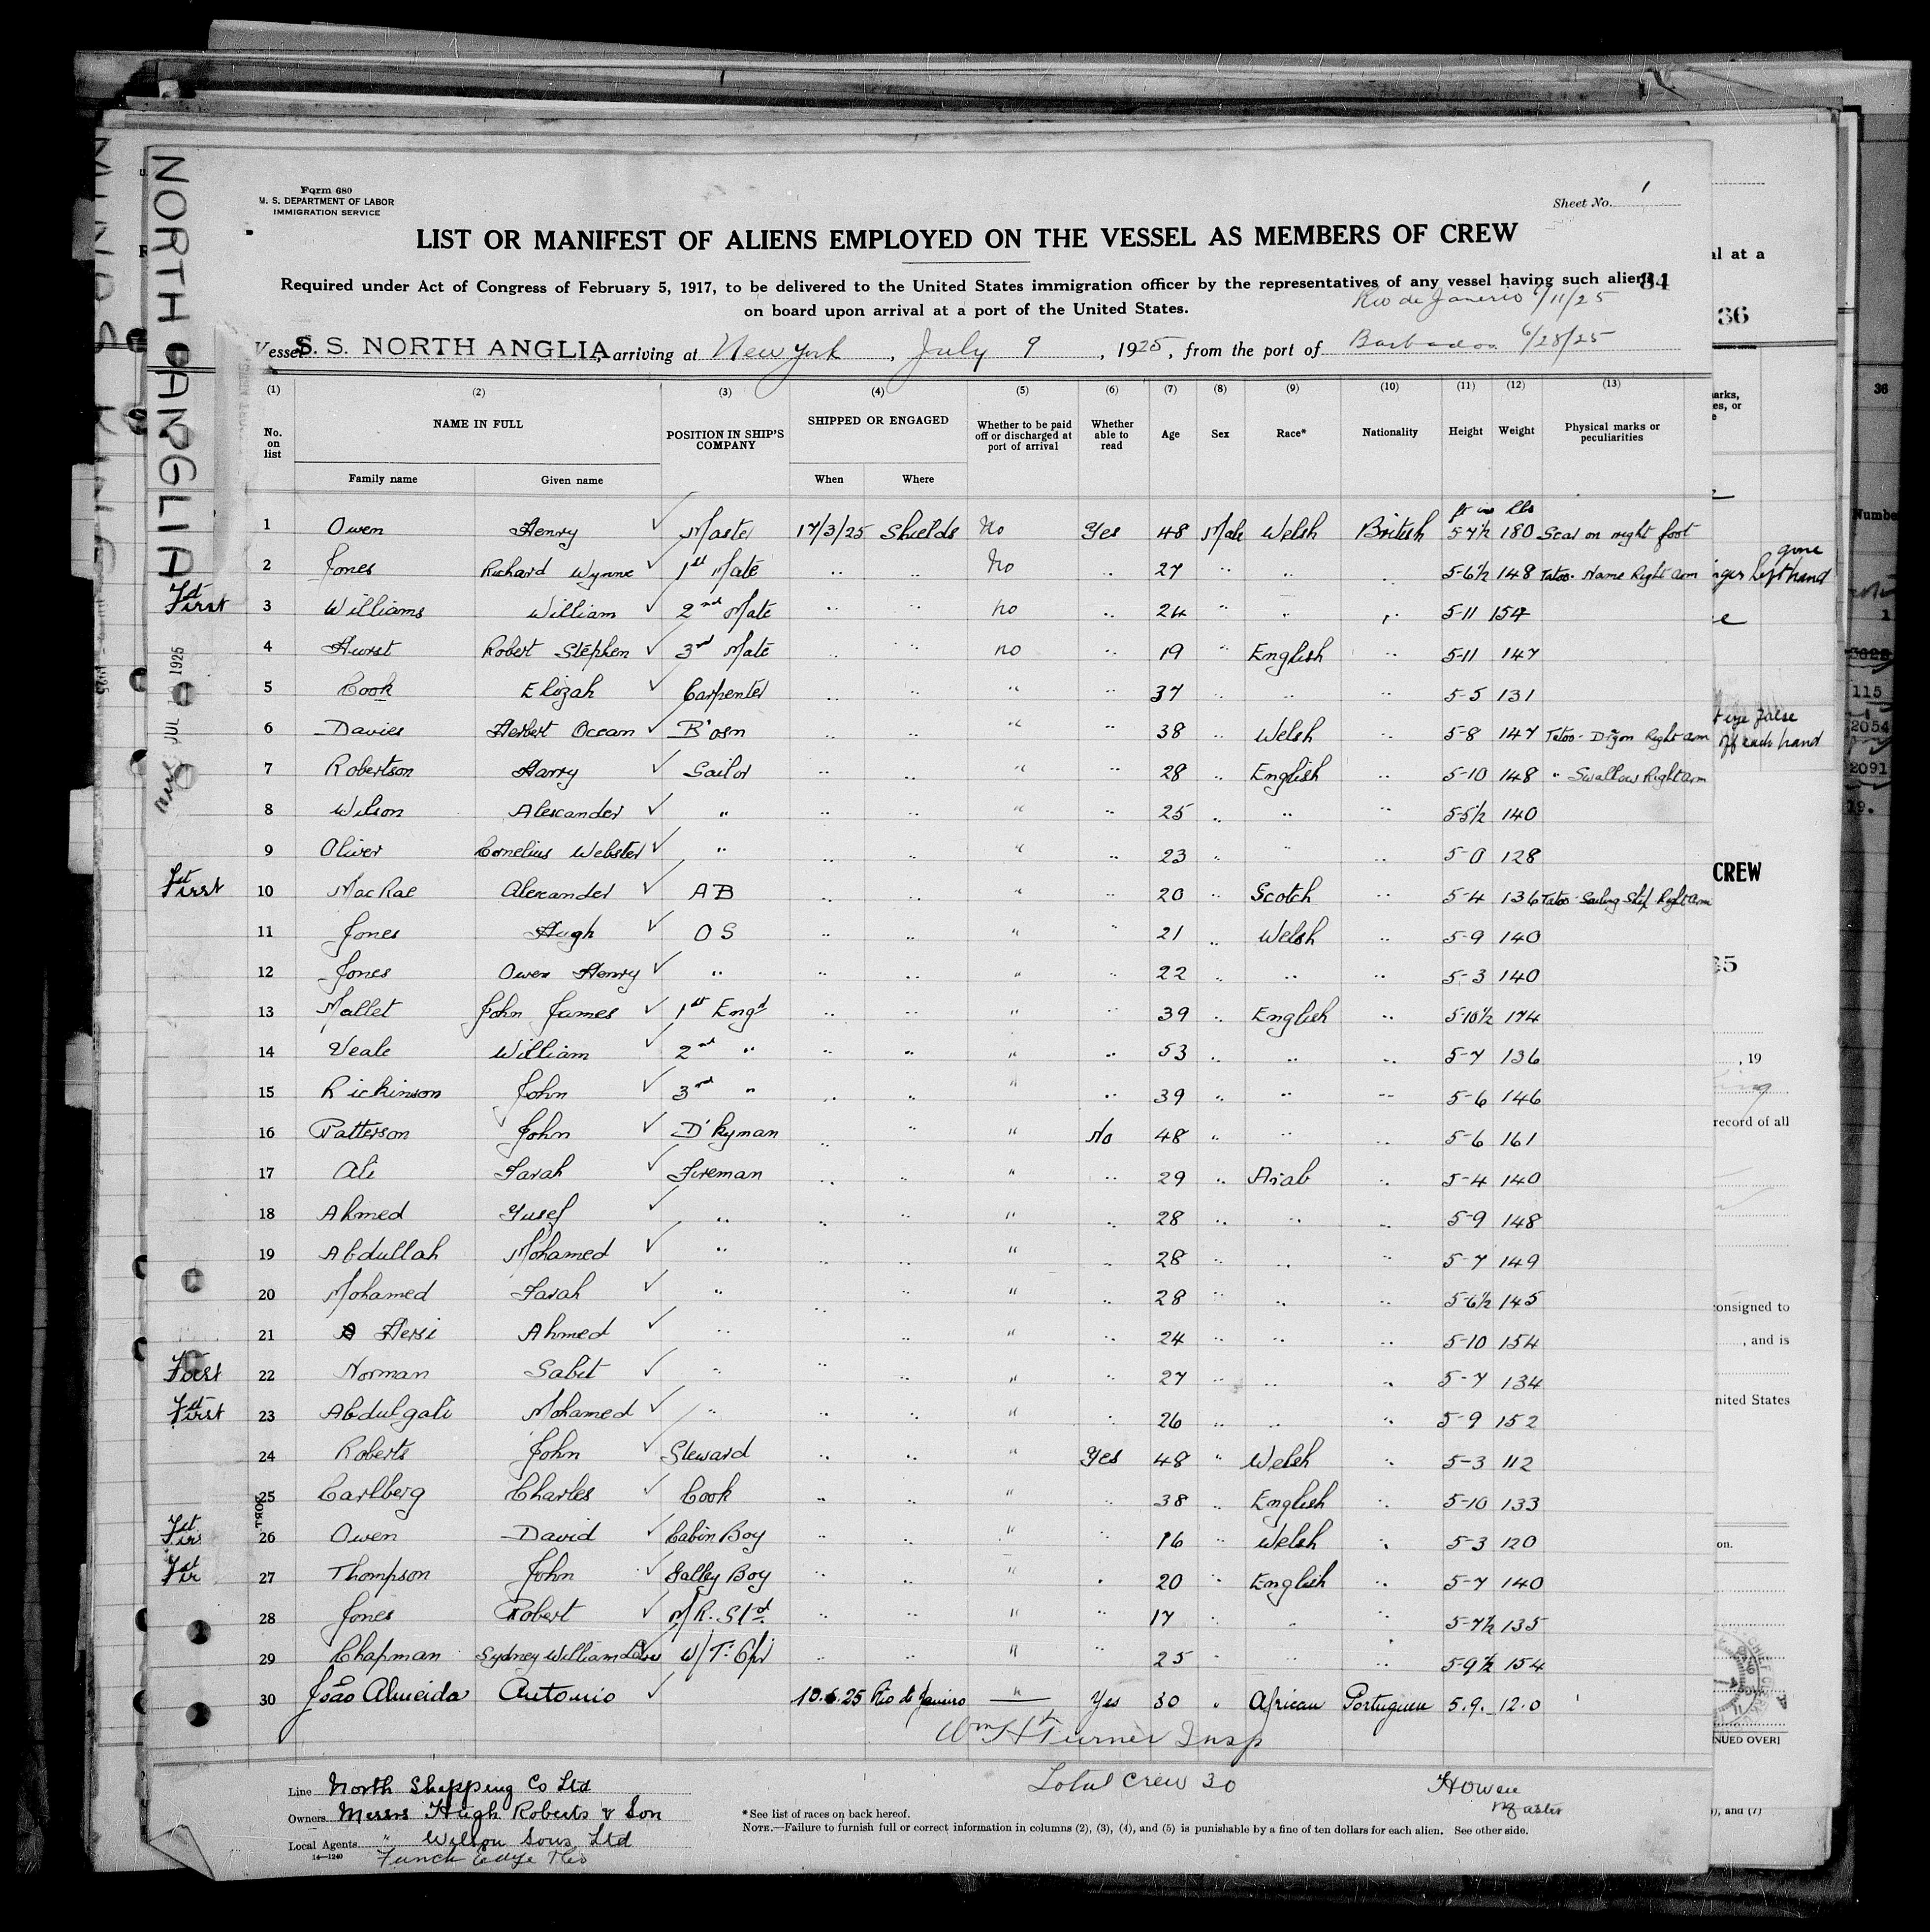 NORTH ANGLIA
Form 680
U. S. DEPARTMENT OF LABOR
IMMIGRATION SERVICE
Sheet No. 1
LIST OR MANIFEST OF ALIENS EMPLOYED ON THE VESSEL AS MEMBERS OF CREW
Required under Act of Congress of February 5, 1917, to be delivered to the United States immigration officer by the representatives of any vessel having such aliens
84
on board upon arrival at a port of the United States.
Rio de Janerio 6/11/25
Vessel S. S. NORTH ANGLIA, arriving at New York, July 9, 1925, from the port of Barbados 6/28/25
(1) (2) (3) (4) (5) (6) (7) (8) (9) (10) (11) (12) (13)
No. on list NAME IN FULL POSITION IN SHIP'S COMPANY SHIPPED OR ENGAGED Whether to be paid off or discharged at port of arrival Whether able to read Age Sex Race* Nationality Height Weight Physical marks or peculiarities
Family name Given name When Where
ft ins lbs
1 Owen Henry ✓ Master 17/3/25 Shields No Yes 48 Male Welsh British 5-7½ 180 Scar on right foot
2 Jones Richard Wynne ✓ 1st Mate " " No " 27 " " " 5-6½ 148 Tatoo. Name Right arm
First 3 Williams William ✓ 2nd Mate " " no " 24 " " " 5-11 154
4 Hurst Robert Stephen ✓ 3rd Mate " " no " 19 " English " 5-11 147
5 Cook Elizah ✓ Carpenter " " " " 37 " " " 5-5 131
6 Davies Herbert Ocean ✓ B'osn " " " " 38 " Welsh " 5-8 147 Tatoo - Right arm
7 Robertson Harry ✓ Sailor " " " " 28 " English " 5-10 148 " Swallow Right arm
8 Wilson Alexander ✓ " " " " " 25 " " " 5-5½ 140
9 Oliver Cornelius Webster ✓ " " " " " 23 " " " 5-0 128
First 10 MacRae Alexander ✓ AB " " " " 20 " Scotch " 5-4 136 Tatoo - Sailing Ship Right arm
11 Jones Hugh ✓ OS " " " " 21 " Welsh " 5-9 140
12 Jones Owen Henry ✓ " " " " " 22 " " " 5-3 140
13 Mallet John James ✓ 1st Engr " " " " 39 " English " 5-10½ 174
14 Veale William ✓ 2nd " " " " " 53 " " " 5-7 136
15 Rickinson John ✓ 3rd " " " " " 39 " " " 5-6 146
16 Patterson John ✓ D'kyman " " " No 48 " " " 5-6 161
17 Ali Farah ✓ Fireman " " " " 29 " Arab " 5-4 140
18 Ahmed Yusef ✓ " " " " " 28 " " " 5-9 148
19 Abdullah Mohamed ✓ " " " " " 28 " " " 5-7 149
20 Mohamed Farah ✓ " " " " " 28 " " " 5-6½ 145
21 Hersi Ahmed ✓ " " " " " 24 " " " 5-10 154
First 22 Norman Sabit ✓ " " " " " 27 " " " 5-7 134
First 23 Abdulgali Mohamed ✓ " " " " " 26 " " " 5-9 152
24 Roberts John ✓ Steward " " " Yes 48 " Welsh " 5-3 112
25 Carlberg Charles ✓ Cook " " " " 38 " English " 5-10 133
26 Owen David ✓ Cabin Boy " " " " 16 " Welsh " 5-3 120
27 Thompson John ✓ Galley Boy " " " " 20 " English " 5-7 140
28 Jones Robert ✓ M/R. Std. " " " " 17 " " " 5-7½ 135
29 Chapman Sydney William ✓ W/T. Opr " " " " 25 " " " 5-9½ 154
30 João Almeida Antonio ✓ 10.6.25 Rio de Janeiro " Yes 30 " African Portuguese 5.9. 12.0
Wm H Turner Insp
Total Crew 30
H Owen
Master
Line North Shipping Co Ltd
Owners Messrs Hugh Roberts & Son
Local Agents " Wilson Sons Ltd
Funch Edye &Co
14—1240
*See list of races on back hereof.
NOTE.—Failure to furnish full or correct information in columns (2), (3), (4), and (5) is punishable by a fine of ten dollars for each alien. See other side.
al at a
36
arks,
es, or
gone
hand
t eye false
off each hand
CREW
, 19
record of all
consigned to
, and is
nited States
on.
NUED OVER]
), and (7)
36
Number
115
2054
2091
19.
JUL 1925